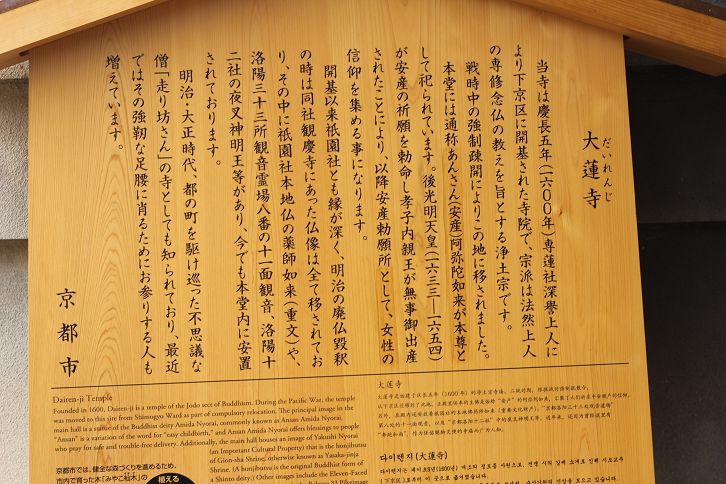 だいれんじ
大蓮寺
当寺は慶長五年(一六〇〇年)専蓮社深誉上人に
より下京区に開基された寺院で、宗派は法然上人
の専修念仏の教えを旨とする浄土宗です。
戦時中の強制疎開によりこの地に移されました。
本堂には通称あんさん(安産)阿弥陀如来が本尊と
して祀られています。後光明天皇(一六三三ー一六五四)
が安産の祈願を勅命し孝子内親王が無事御出産
されたことにより、以降安産勅願所として、女性の
信仰を集める事になります。
開基以来祇園社とも縁が深く、明治の廃仏毀釈
の時は同社観慶寺にあった仏像は全て移されてお
り、その中に祇園社本地仏の薬師如来(重文)や、
洛陽三十三所観音霊場八番の十一面観音、洛陽十
二社の夜叉神明王等があり、今でも本堂内に安置
されております。
明治・大正時代、都の町を駆け巡った不思議な
僧「走り坊さん」の寺としても知られており、最近
ではその強靭な足腰に肖るためにお参りする人も
増えています。
京都市
Dairen-ji Temple
Founded in 1600, Dairen-ji is a temple of the Jodo sect of Buddhism. During the Pacific War, the temple
was moved to this site from Shimogyo Ward as part of compulsory relocation. The principal image in the
main hall is a statue of the Buddhist deity Amida Nyorai, commonly known as Ansan Amida Nyorai.
"Ansan" is a variation of the word for "easy childbirth," and Ansan Amida Nyorai offers blessings to people
who pray for safe and trouble-free delivery. Additionally, the main hall houses an image of Yakushi Nyorai
(an Important Cultural Property) that is the honjibutsu
of Gion-sha Shrine, otherwise known as Yasaka-jinja
Shrine. (A honjibutsu is the original Buddhist form of
a Shinto deity.) Other images include the Eleven-Faced
京都市では、健全な森づくりを進めるため、
市内で育った木「みやこ杣木」の
植える
大莲寺
다이렌지(大蓮寺)